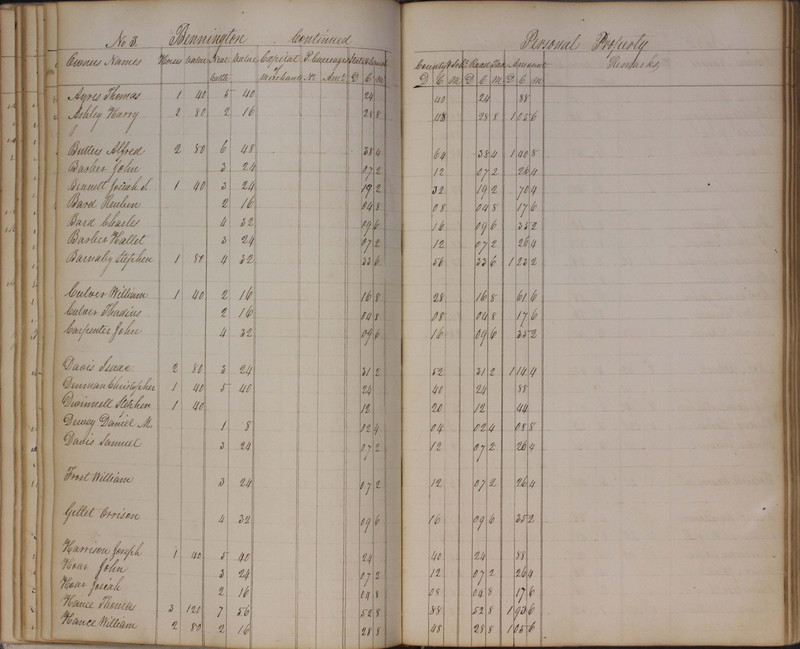 No 3. Bennington Continued Personal Property
Owners Names Horses Value Neat Cattle Value Capital Merchants P. Carriages No. Amt State & Canal D C M County & School D C M Road Tax D C M Amount D C M Remarks
Ayres Thomas 1 40 5 40 24 40 24 88
Ashley Harry 2 80 2 16 28 8 48 28 8 1 05 6
Butles Alfred 2 80 6 48 38 4 64 38 4 1 40 8
Barber John 3 24 07 2 12 07 2 26 4
Bennett Josiah S. 1 40 3 24 19 2 32 19 2 70 4
Bard Reuben 2 16 04 8 08 04 8 17 6
Bard Charles 4 32 09 6 16 09 6 35 2
Barber Hallet 3 24 07 2 12 07 2 26 4
Barnaby Stephen 1 80 4 32 33 6 56 33 6 1 23 2
Culver William 1 40 2 16 16 8 28 16 8 61 6
Culver Thadius 2 16 04 8 08 04 8 17 6
Carpenter John 4 32 09 6 16 09 6 35 2
Davis Isaac 2 80 3 24 31 2 52 31 2 1 14 4
Denman Christopher 1 40 5 40 24 40 24 88
Stephen 1 40 12 20 12 44
Dewey Daniel M. 1 8 02 4 04 02 4 08 8
Davis Samuel 3 24 07 2 12 07 2 26 4
Frost William 3 24 07 2 12 07 2 26 4
Gillet Orrison 4 32 09 6 16 09 6 35 2
Harrison Joseph 1 40 5 40 24 40 24 88
Hoar John 3 24 07 2 12 07 2 26 4
Hoar Josiah 2 16 04 8 08 04 8 17 6
Hance Thomas 3 120 7 56 52 8 88 52 8 1 93 6
Hance William 2 80 2 16 28 8 48 28 8 1 05 6